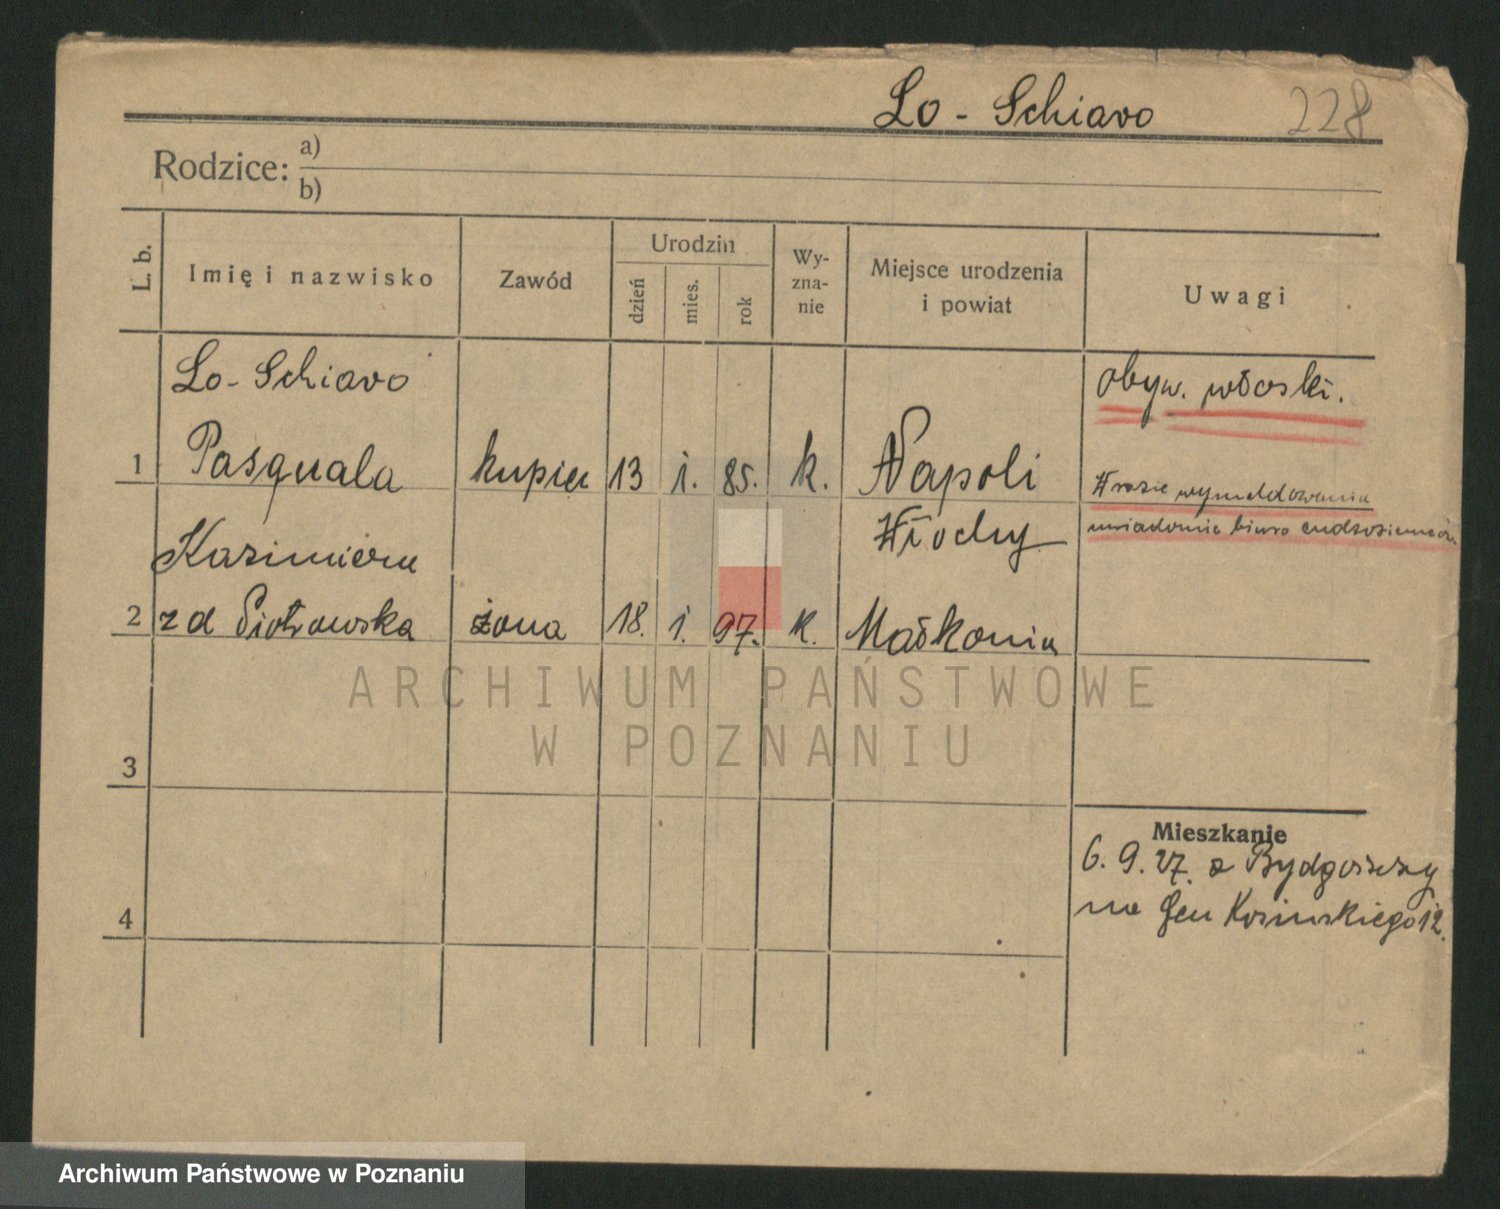 Lo - Schiavo 228
Rodzice: a)
b)
L. b. Imię i nazwisko Zawód Urodzin dzień mies. rok Wy-zna-nie Miejsce urodzenia i powiat Uwagi
Lo-Schiavo obyw. włoski.
1 Pasquala kupiec 13 1. 85. k. Napoli
W razie wymeldowania
Włochy
uwiadomić biuro cudzoziemców.
Kazimiera
2 z d Piotrowska żona 18. 1. 97. k. Małkonia
ARCHIWUM PAŃSTWOWE
W POZNANIU
3
Mieszkanie
6. 9. 27. z Bydgoszczy
4 na Gen Kosinskiego 12.
Archiwum Państwowe w Poznaniu